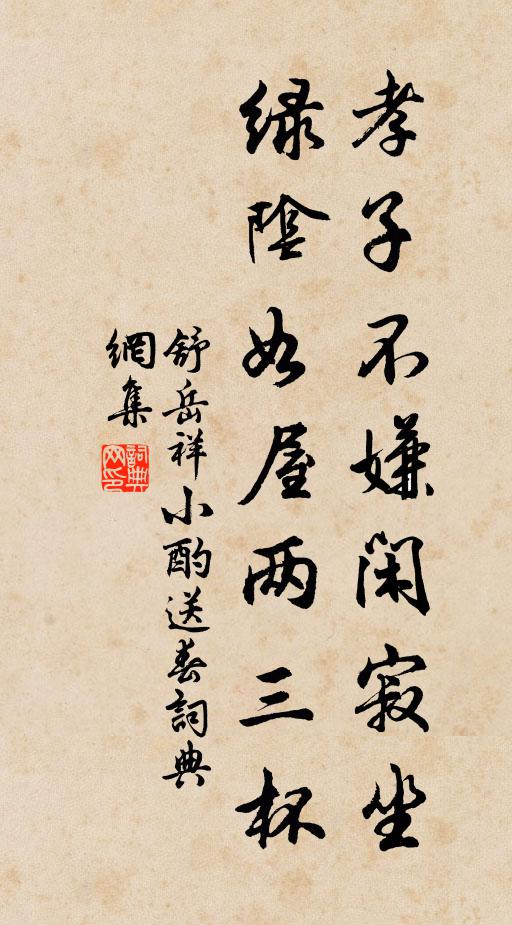 孝子不嫌閑寂坐
綠陰如屋两三杯
舒岳祥小酌送春詞典
網集
詞典网印